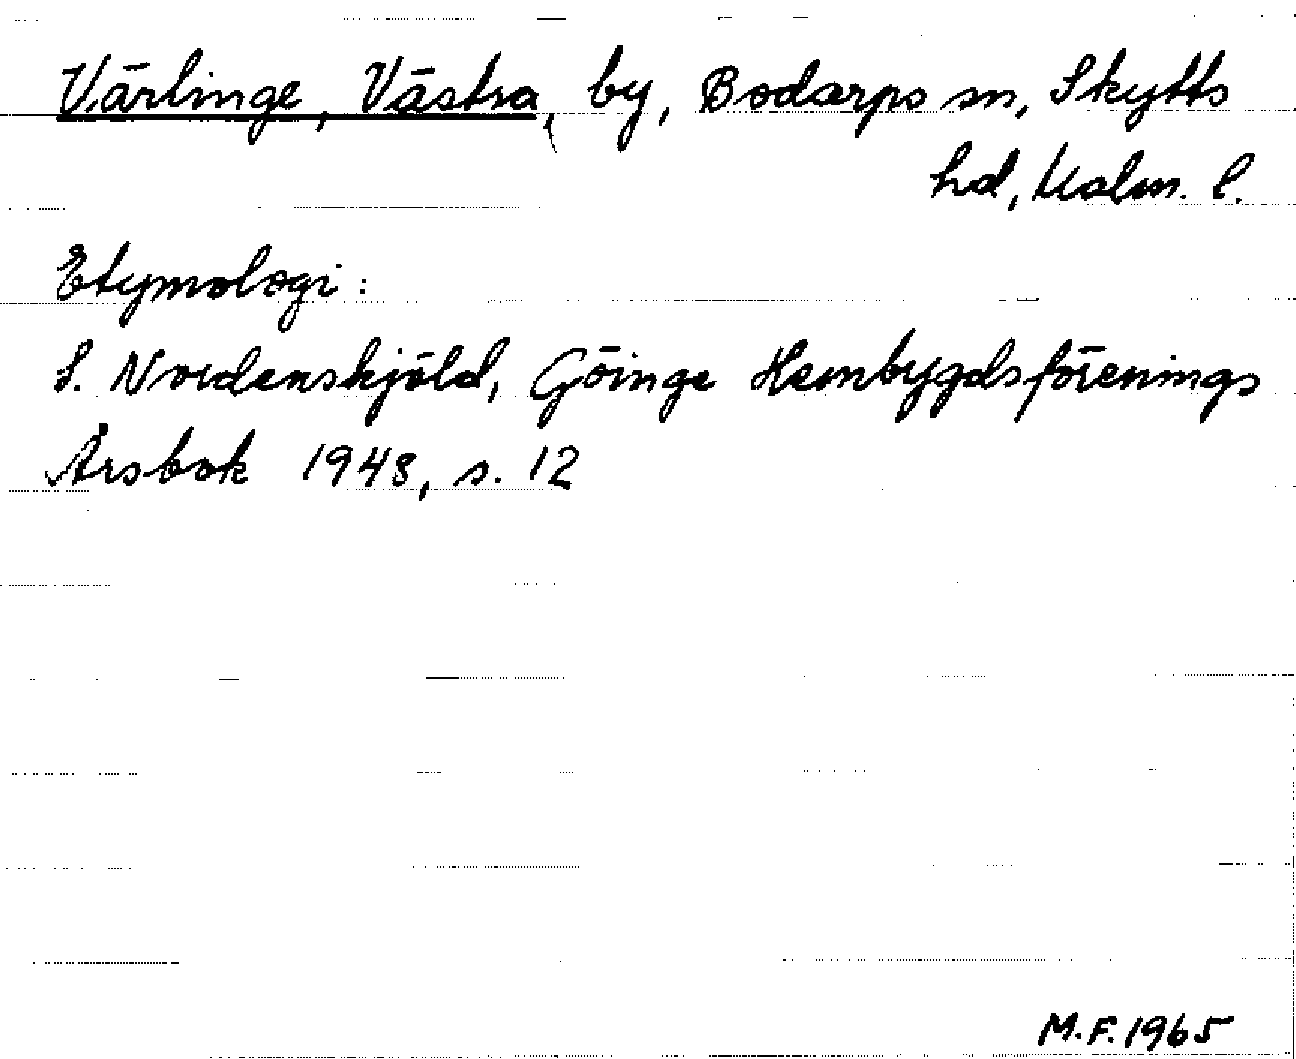 Värlinge, Västra, by, Bodarps sn, Skytts
hd, Malm. l.
Etymologi:
S. Nordenskjöld, Göinge Hembygdsförenings
Årsbok 1948, s. 12
M.F. 1965